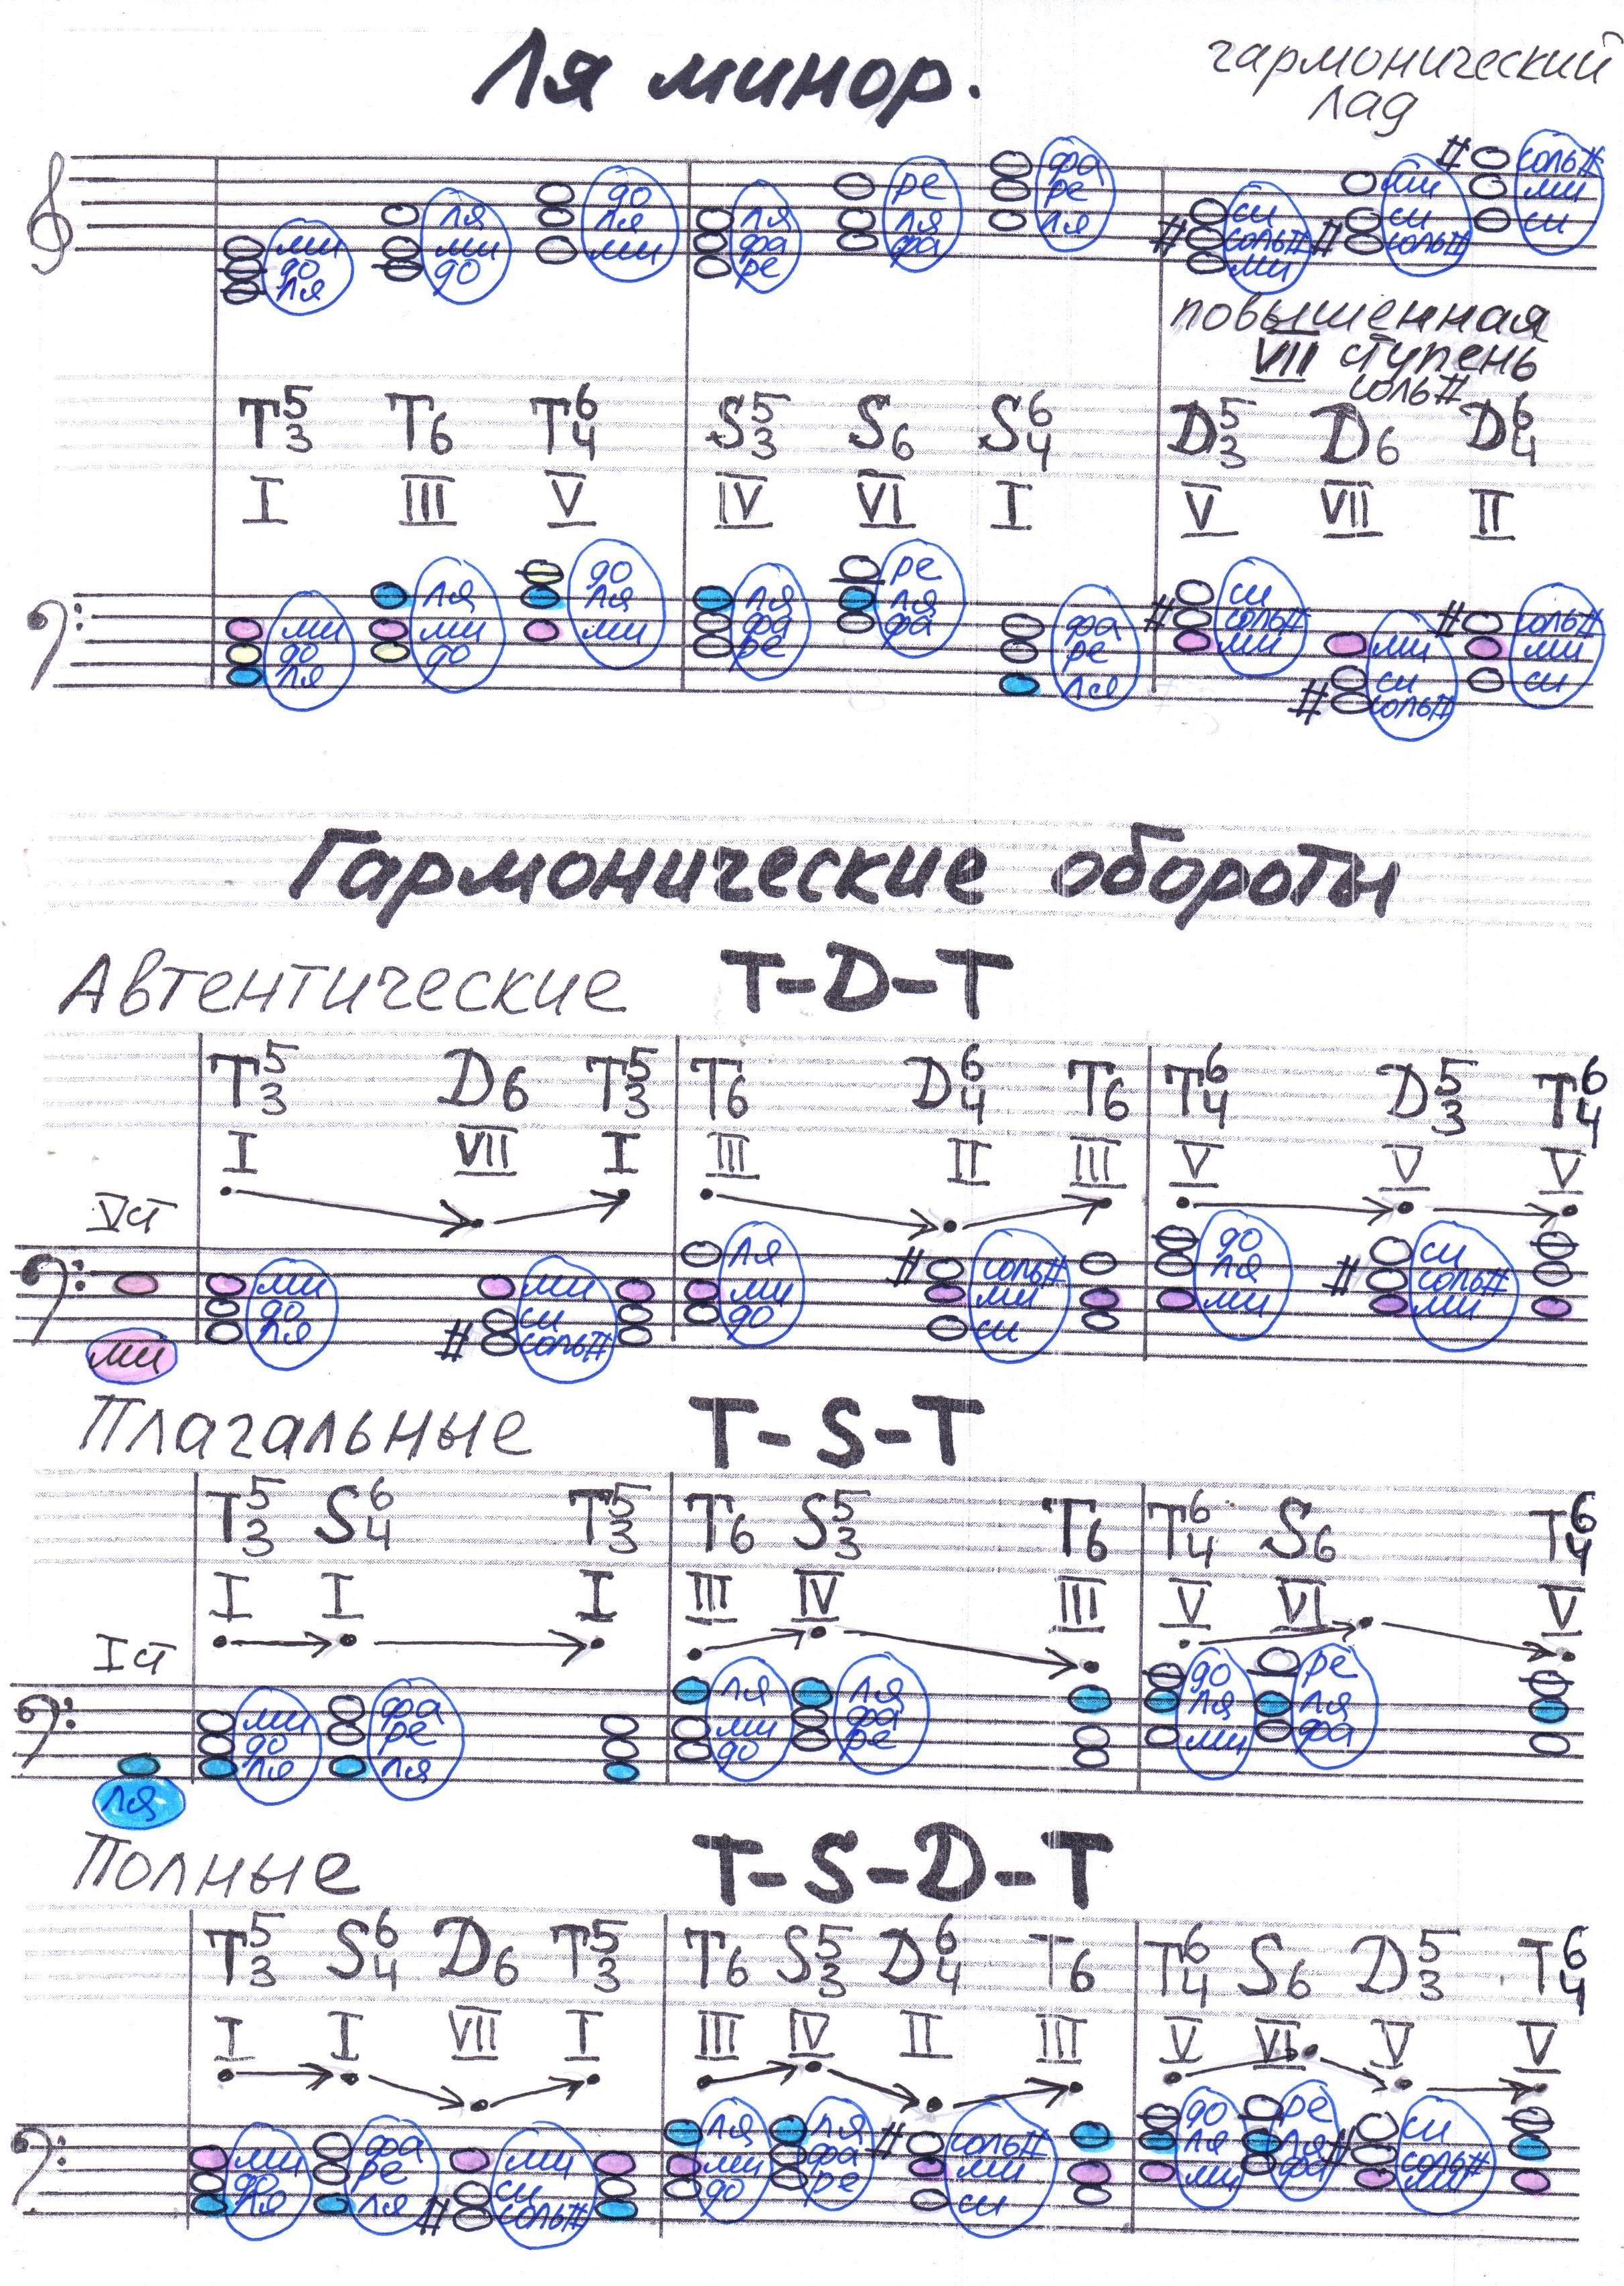 Ля минор.
гармонический
лад
ми до ля ля ми до до ля ми ля фа ре ре ля фа фа ре ля си соль# ми ми си соль# соль# ми си
повышенная
VII ступень
соль#
T5/3 T6 T6/4 S5/3 S6 S6/4 D5/3 D6 D6/4
I III V IV VI I V VII II
ми до ля ля ми до до ля ми ля фа ре ре ля фа фа ре ля си соль# ми ми си соль# соль# ми си
Гармонические обороты
Автентические T-D-T
T5/3 D6 T5/3 T6 D6/4 T6 T6/4 D5/3 T6/4
I VII I III II III V V V
V ст
ми до ля ми си соль# ля ми до соль# ми си до ля ми си соль# ми
ми
Плагальные T-S-T
T5/3 S6/4 T5/3 T6 S5/3 T6 T6/4 S6 T6/4
I I I III IV III V VI V
I ст
ми до ля фа ре ля ля ми до ля фа ре до ля ми ре ля фа
ля
Полные T-S-D-T
T5/3 S6/4 D6 T5/3 T6 S5/3 D6/4 T6 T6/4 S6 D5/3 T6/4
I I VII I III IV II III V VI V V
ми до ля фа ре ля ми си соль# ля ми до ля фа ре соль# ми си до ля ми ре ля фа си соль# ми